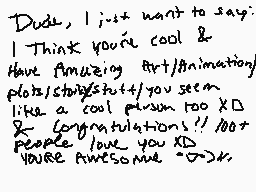 Dude, I just want to say:
I Think you're cool &
Have Amazing Art/Animation/
plots/story/stuff/you seem
like a cool person too XD
& Congratulations!! 100+
people love you XD
YOU'RE AWESOME